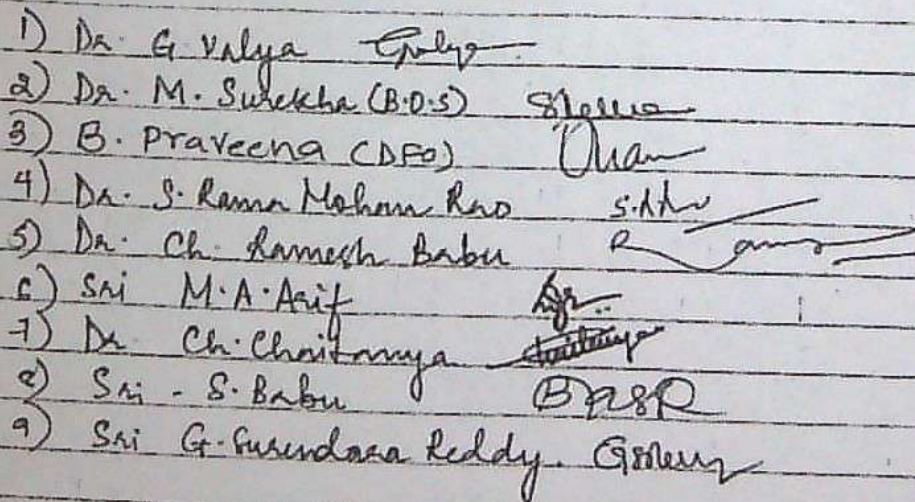 1) Dr. G. Valya
2) Dr. M. Surekha (B.O.S)
3) B. Praveena (DFO)
4) Dr. S. Rama Mohan Rao
5) Dr. Ch. Ramesh Babu
6) Sri M.A. Arif
7) Dr Ch. Chaitanya Chaitanya
8) Sri - S. Babu
9) Sri G. Surendara Reddy.